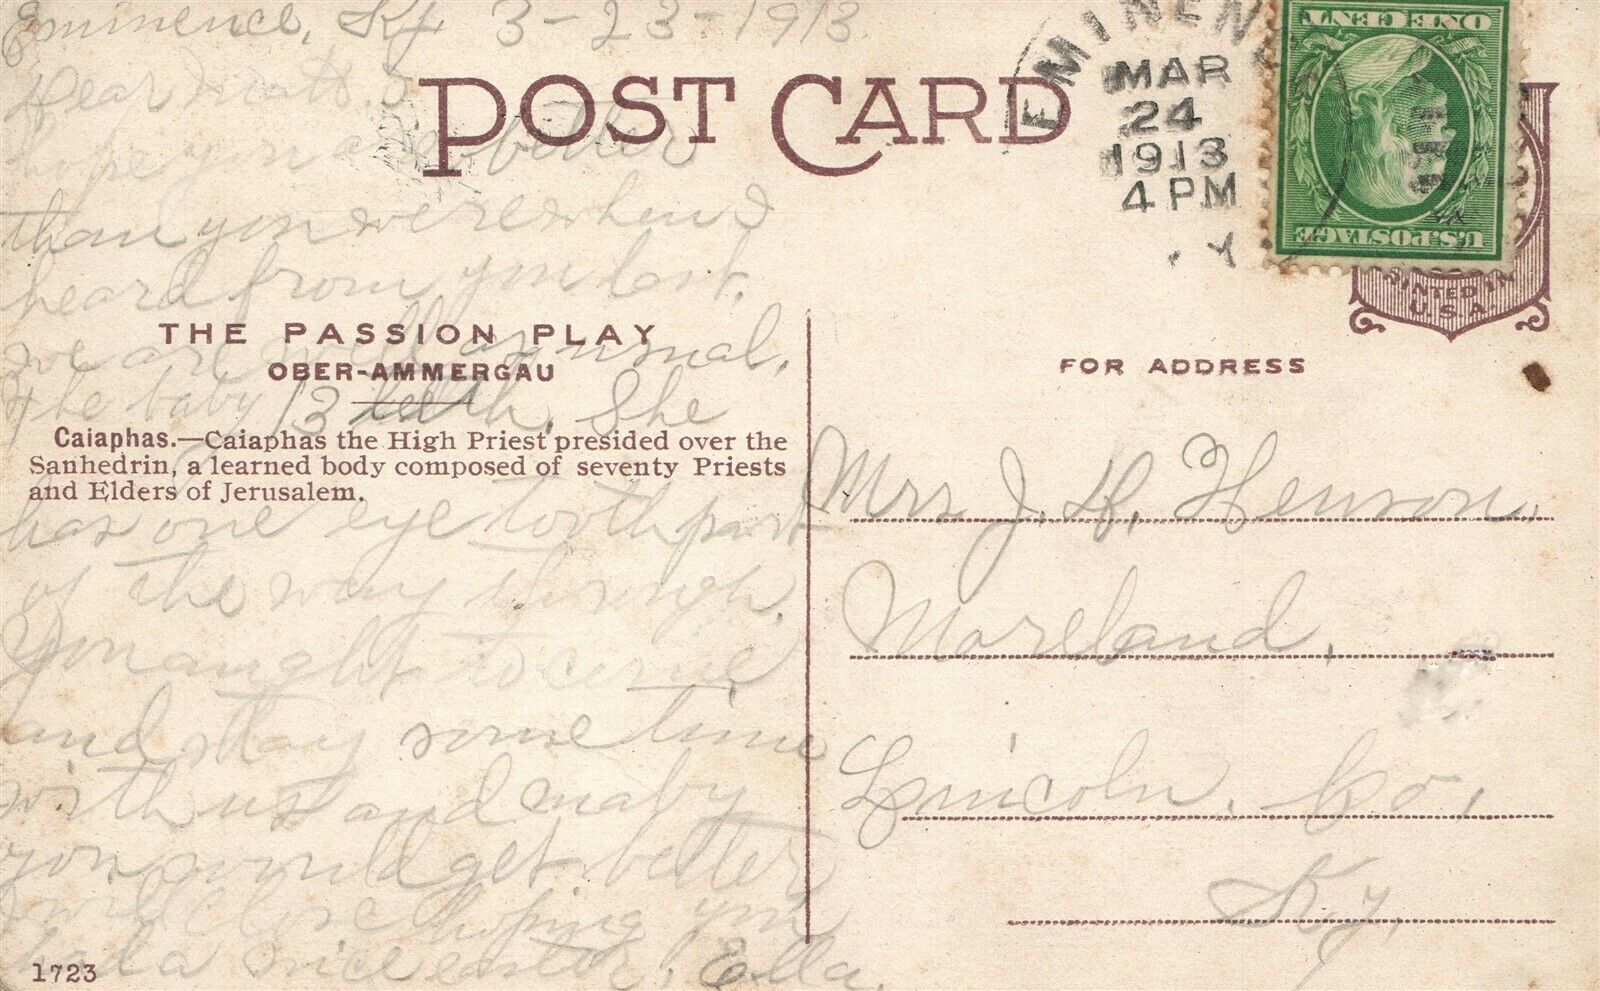 Eminence, Ky 3-23-1913.
Dear
hope you are better
than you were when I
heard from you last.
we are well as usual.
The baby 13 teeth. She
has one eye tooth part
of the way through.
You aught to come
and stay some time
with us and maby
you would get better
I will close hoping you
had a nice easter. Ella.
POST CARD
THE PASSION PLAY
OBER-AMMERGAU
Caiaphas.—Caiaphas the High Priest presided over the
Sanhedrin, a learned body composed of seventy Priests
and Elders of Jerusalem.
1723
EMINENCE
MAR
24
1913
4 PM
U.S. POSTAGE
ONE CENT
PRINTED IN
U.S.A.
FOR ADDRESS
Mrs J. H. Henson.
Moreland,
Lincoln. Co,
Ky.